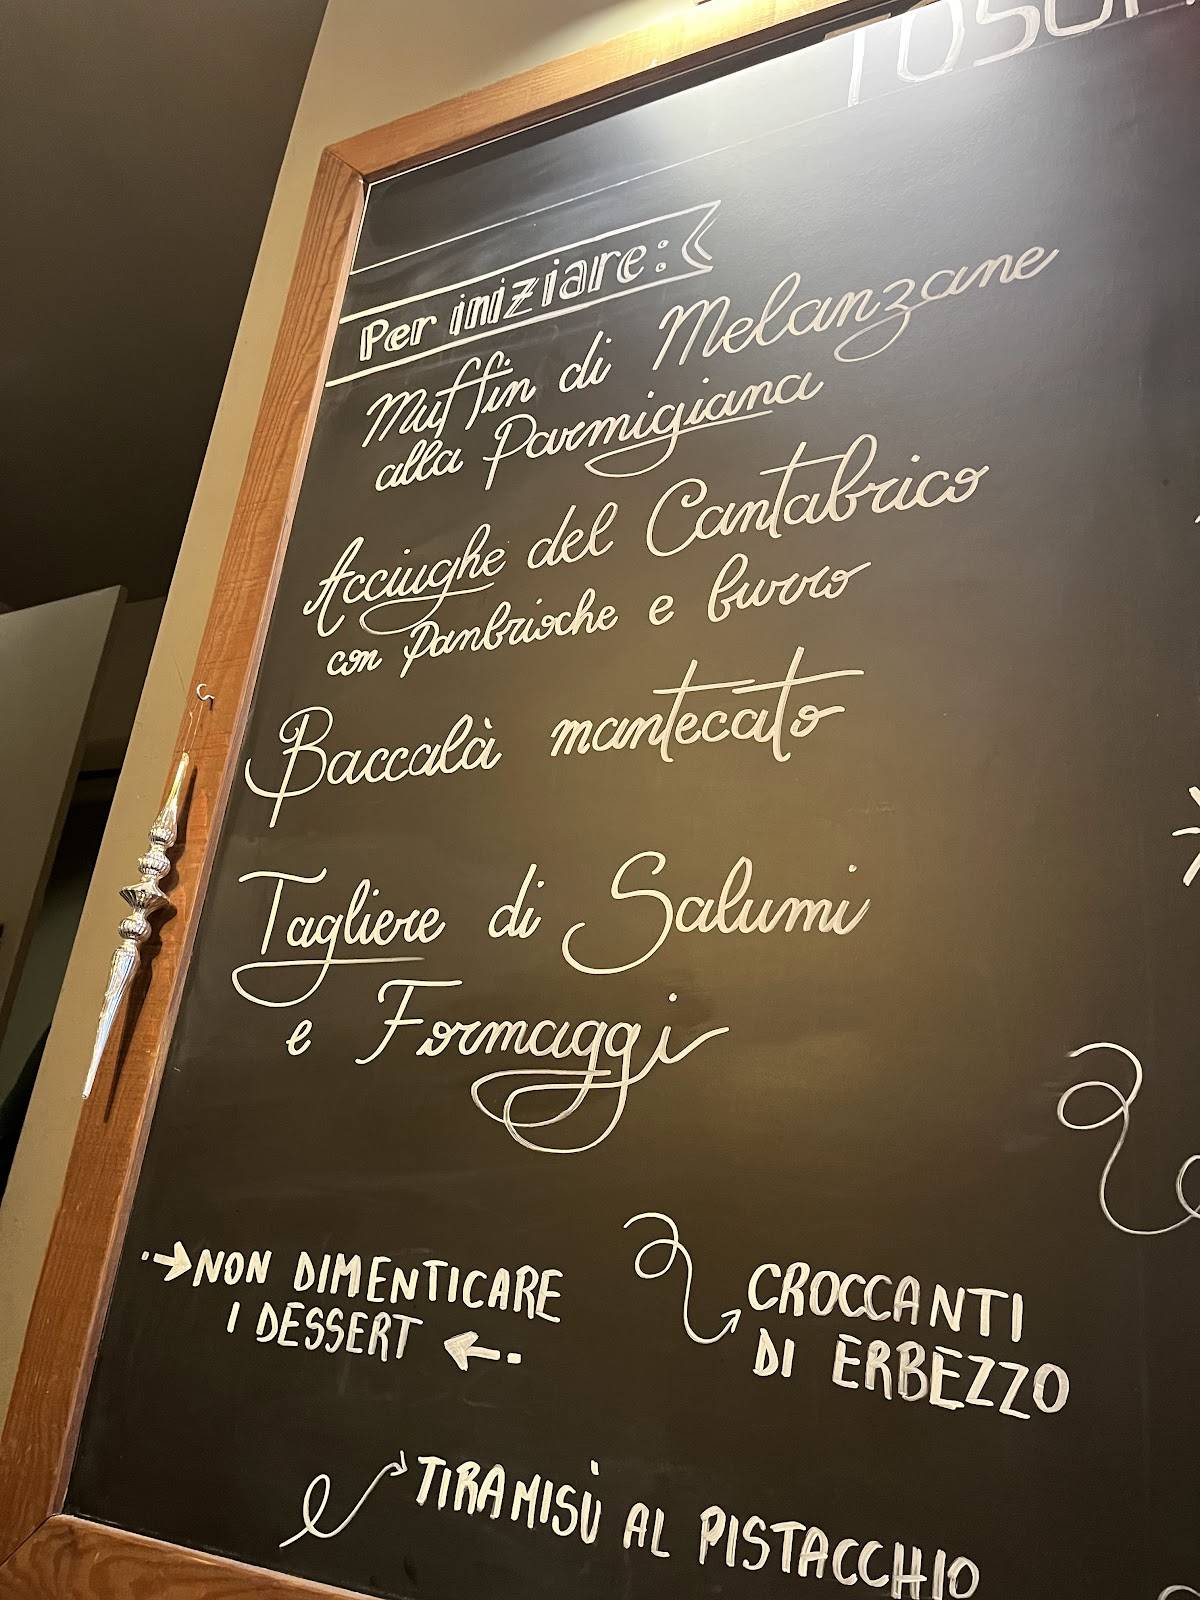 Per iniziare:
Muffin di Melanzane
alla Parmigiana
Acciughe del Cantabrico
con Panbrioche e burro
Baccalà mantecato
Tagliere di Salumi
e Formaggi
NON DIMENTICARE
I DESSERT
CROCCANTI
DI ERBEZZO
TIRAMISÙ AL PISTACCHIO